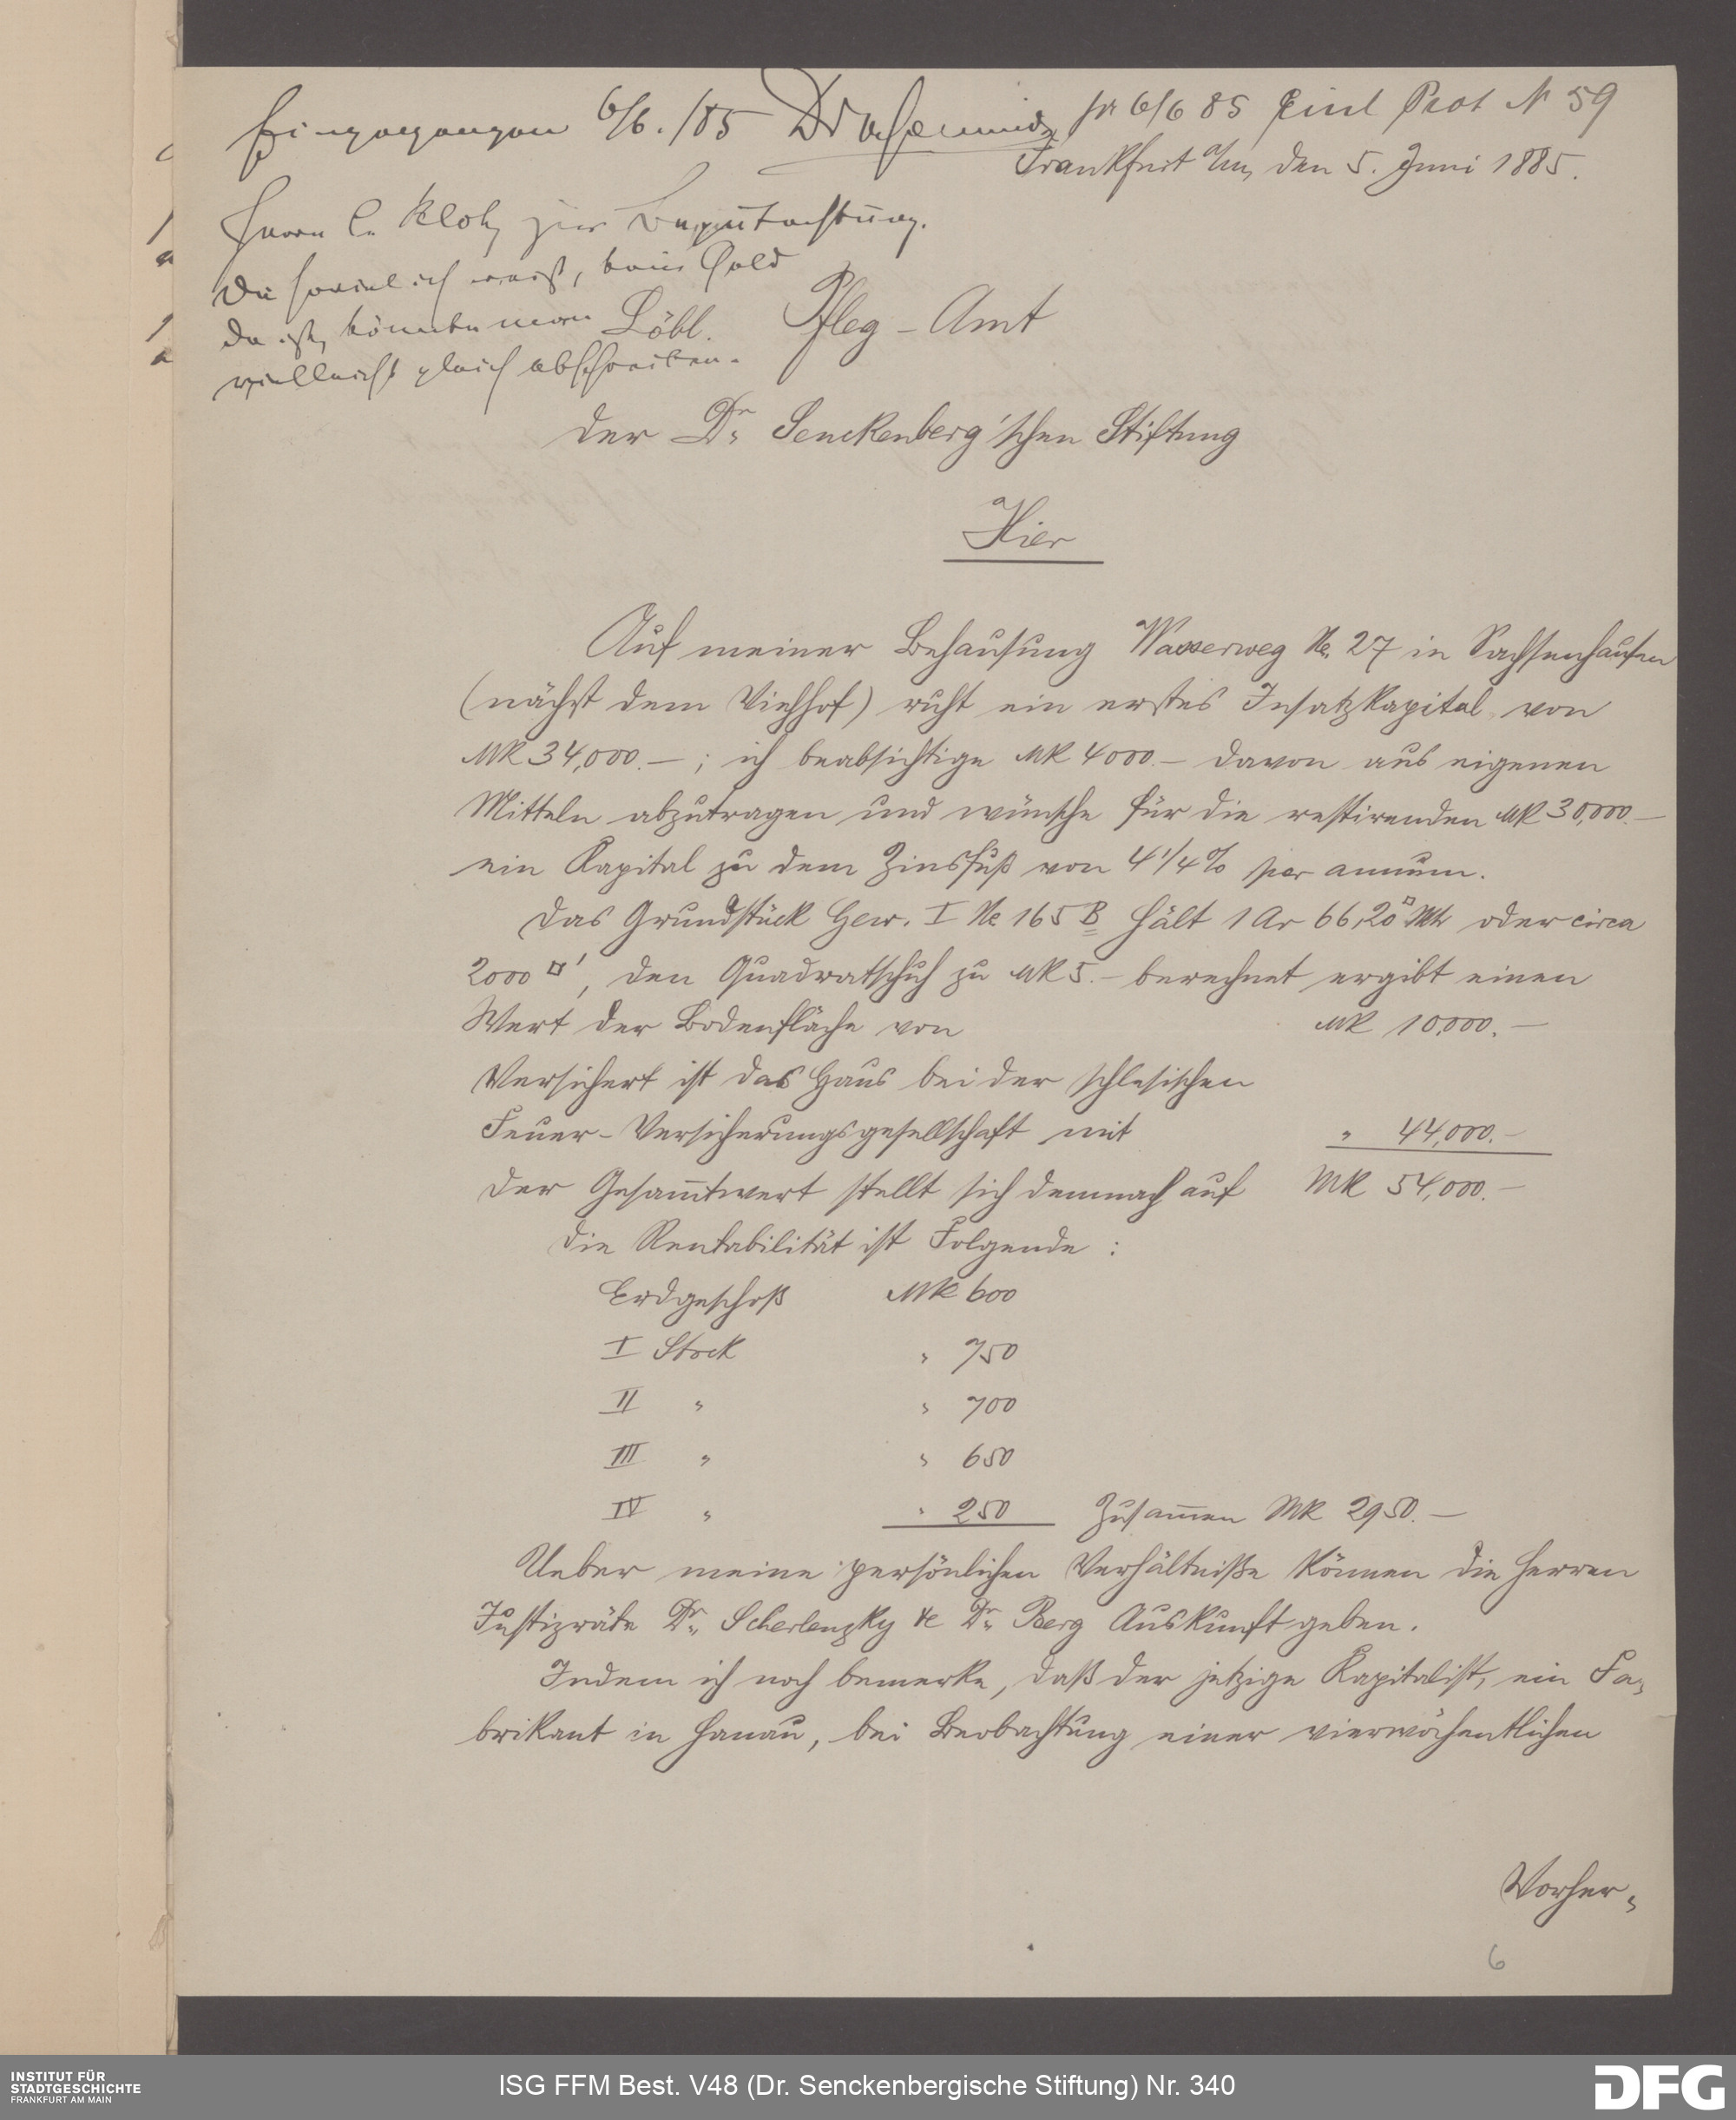 Eingegangen 6/6./85
pr 6/6 85 Einl Prot N 59
Frankfurt a/m, den 5. Juni 1885.
Herrn C. Klotz zur Begutachtung.
Da soviel ich weiß, kein Geld
da ist, könnte man
vielleicht gleich abschreiben.
Löbl. Pfleg-Amt
der Dr. Senckenberg'schen Stiftung
Hier
Auf meiner Behausung Wasserweg No. 27 in Sachsenhausen
(nächst dem Viehhof) ruht ein erstes Insatzkapital von
Mk 34,000.—; ich beabsichtige Mk 4000.— davon aus eigenen
Mitteln abzutragen und wünsche für die restirenden Mk 30,000.—
ein Kapital zu dem Zinsfuß von 4 1/4 % per annum.
Das Grundstück Gew. I No 165 B hält 1 Ar 66,20 □ Mtr oder circa
2000 □', den Quadratschuh zu Mk 5.— berechnet ergibt einen
Wert der Bodenfläche von Mk 10,000.—
Versichert ist das Haus bei der schlesischen
Feuer-Versicherungsgesellschaft mit " 44,000.—
Der Gesam̅twert stellt sich demnach auf Mk 54,000.—
Die Rentabilität ist Folgende:
Erdgeschoß Mk 600
I Stock " 750
II " " 700
III " " 650
IV " " 250 Zusam̅en Mk 2950.—
Ueber meine persönlichen Verhältniße können die Herren
Justizräte Dr. Scherlenzky & Dr. Berg Auskunft geben.
Indem ich noch bemerke, daß der jetzige Kapitalist, ein Fa-
brikant in Hanau, bei Beobachtung einer vierwöchentlichen
Vorher-
6
INSTITUT FÜR
STADTGESCHICHTE
FRANKFURT AM MAIN
ISG FFM Best. V48 (Dr. Senckenbergische Stiftung) Nr. 340
DFG